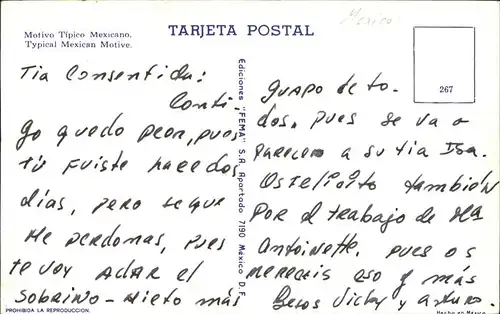 Mexico
Motivo Típico Mexicano.
Typical Mexican Motive.
TARJETA POSTAL
267
Tia Consentida:
Conti
go quedo peor, pues
tú fuiste hace dos
días, pero se que
Me perdonas, pues
te voy a dar el
Sobrino-Nieto más
Ediciones "FEMA" S. A. Apartado 7190 México D. F.
guapo de to-
dos, pues se va a
parecer a su tia Isa.
Os felicito también
Por el trabajo de Mª
Antoinette, pues os
mereceis eso y más
Besos Vicky y Arturo.
PROHIBIDA LA REPRODUCCION.
Hecho en México